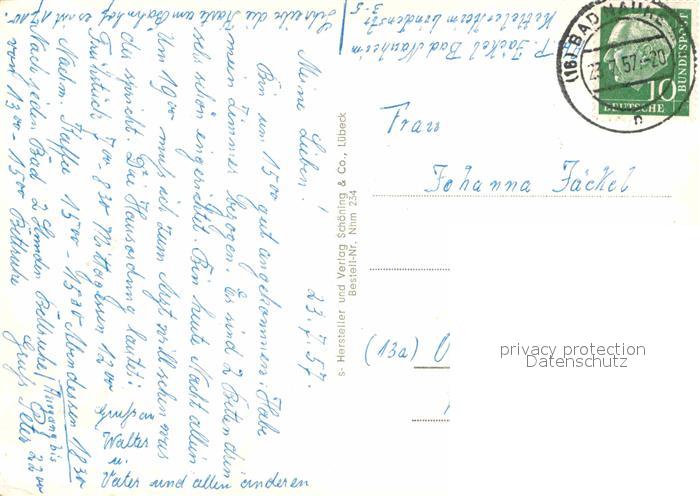 Meine Lieben! 23.7.57.
Bin um 15⁰⁰ gut angekommen. Habe
mein Zimmer bezogen. Es sind 2 Betten drin
seh. schön eingerichtet. Bin heute Nacht allein.
Um 19⁰⁰ muß ich zum Arzt will sehen was
der spricht. Die Hausordnung lautet:
Frühstück 7⁰⁰-8³⁰ Mittagessen 12⁰⁰
Nachm. Kaffee 15⁰⁰-15³⁰ Abendessen 18³⁰
Nach jeden Bad 2 Stunden Bettruhe, Ausgang bis 22⁰⁰
von 13⁰⁰-15⁰⁰ Bettruhe
Gruß Peter
Gruß an
Walter
u.
Vater und allen anderen
Schreibe die Karte am Bahnhof es ist 17¹⁰.
P. Jäckel Bad Nauheim
Kettelerheim Lindenstr.
3-5
s- Hersteller und Verlag Schöning & Co., Lübeck
Bestell-Nr. Nhm 234
(16) BAD NAUHEIM
23.7.57.-20
n
10
DEUTSCHE
BUNDESPOST
Frau
Johanna Jäckel
(13a) O
privacy protection
Datenschutz